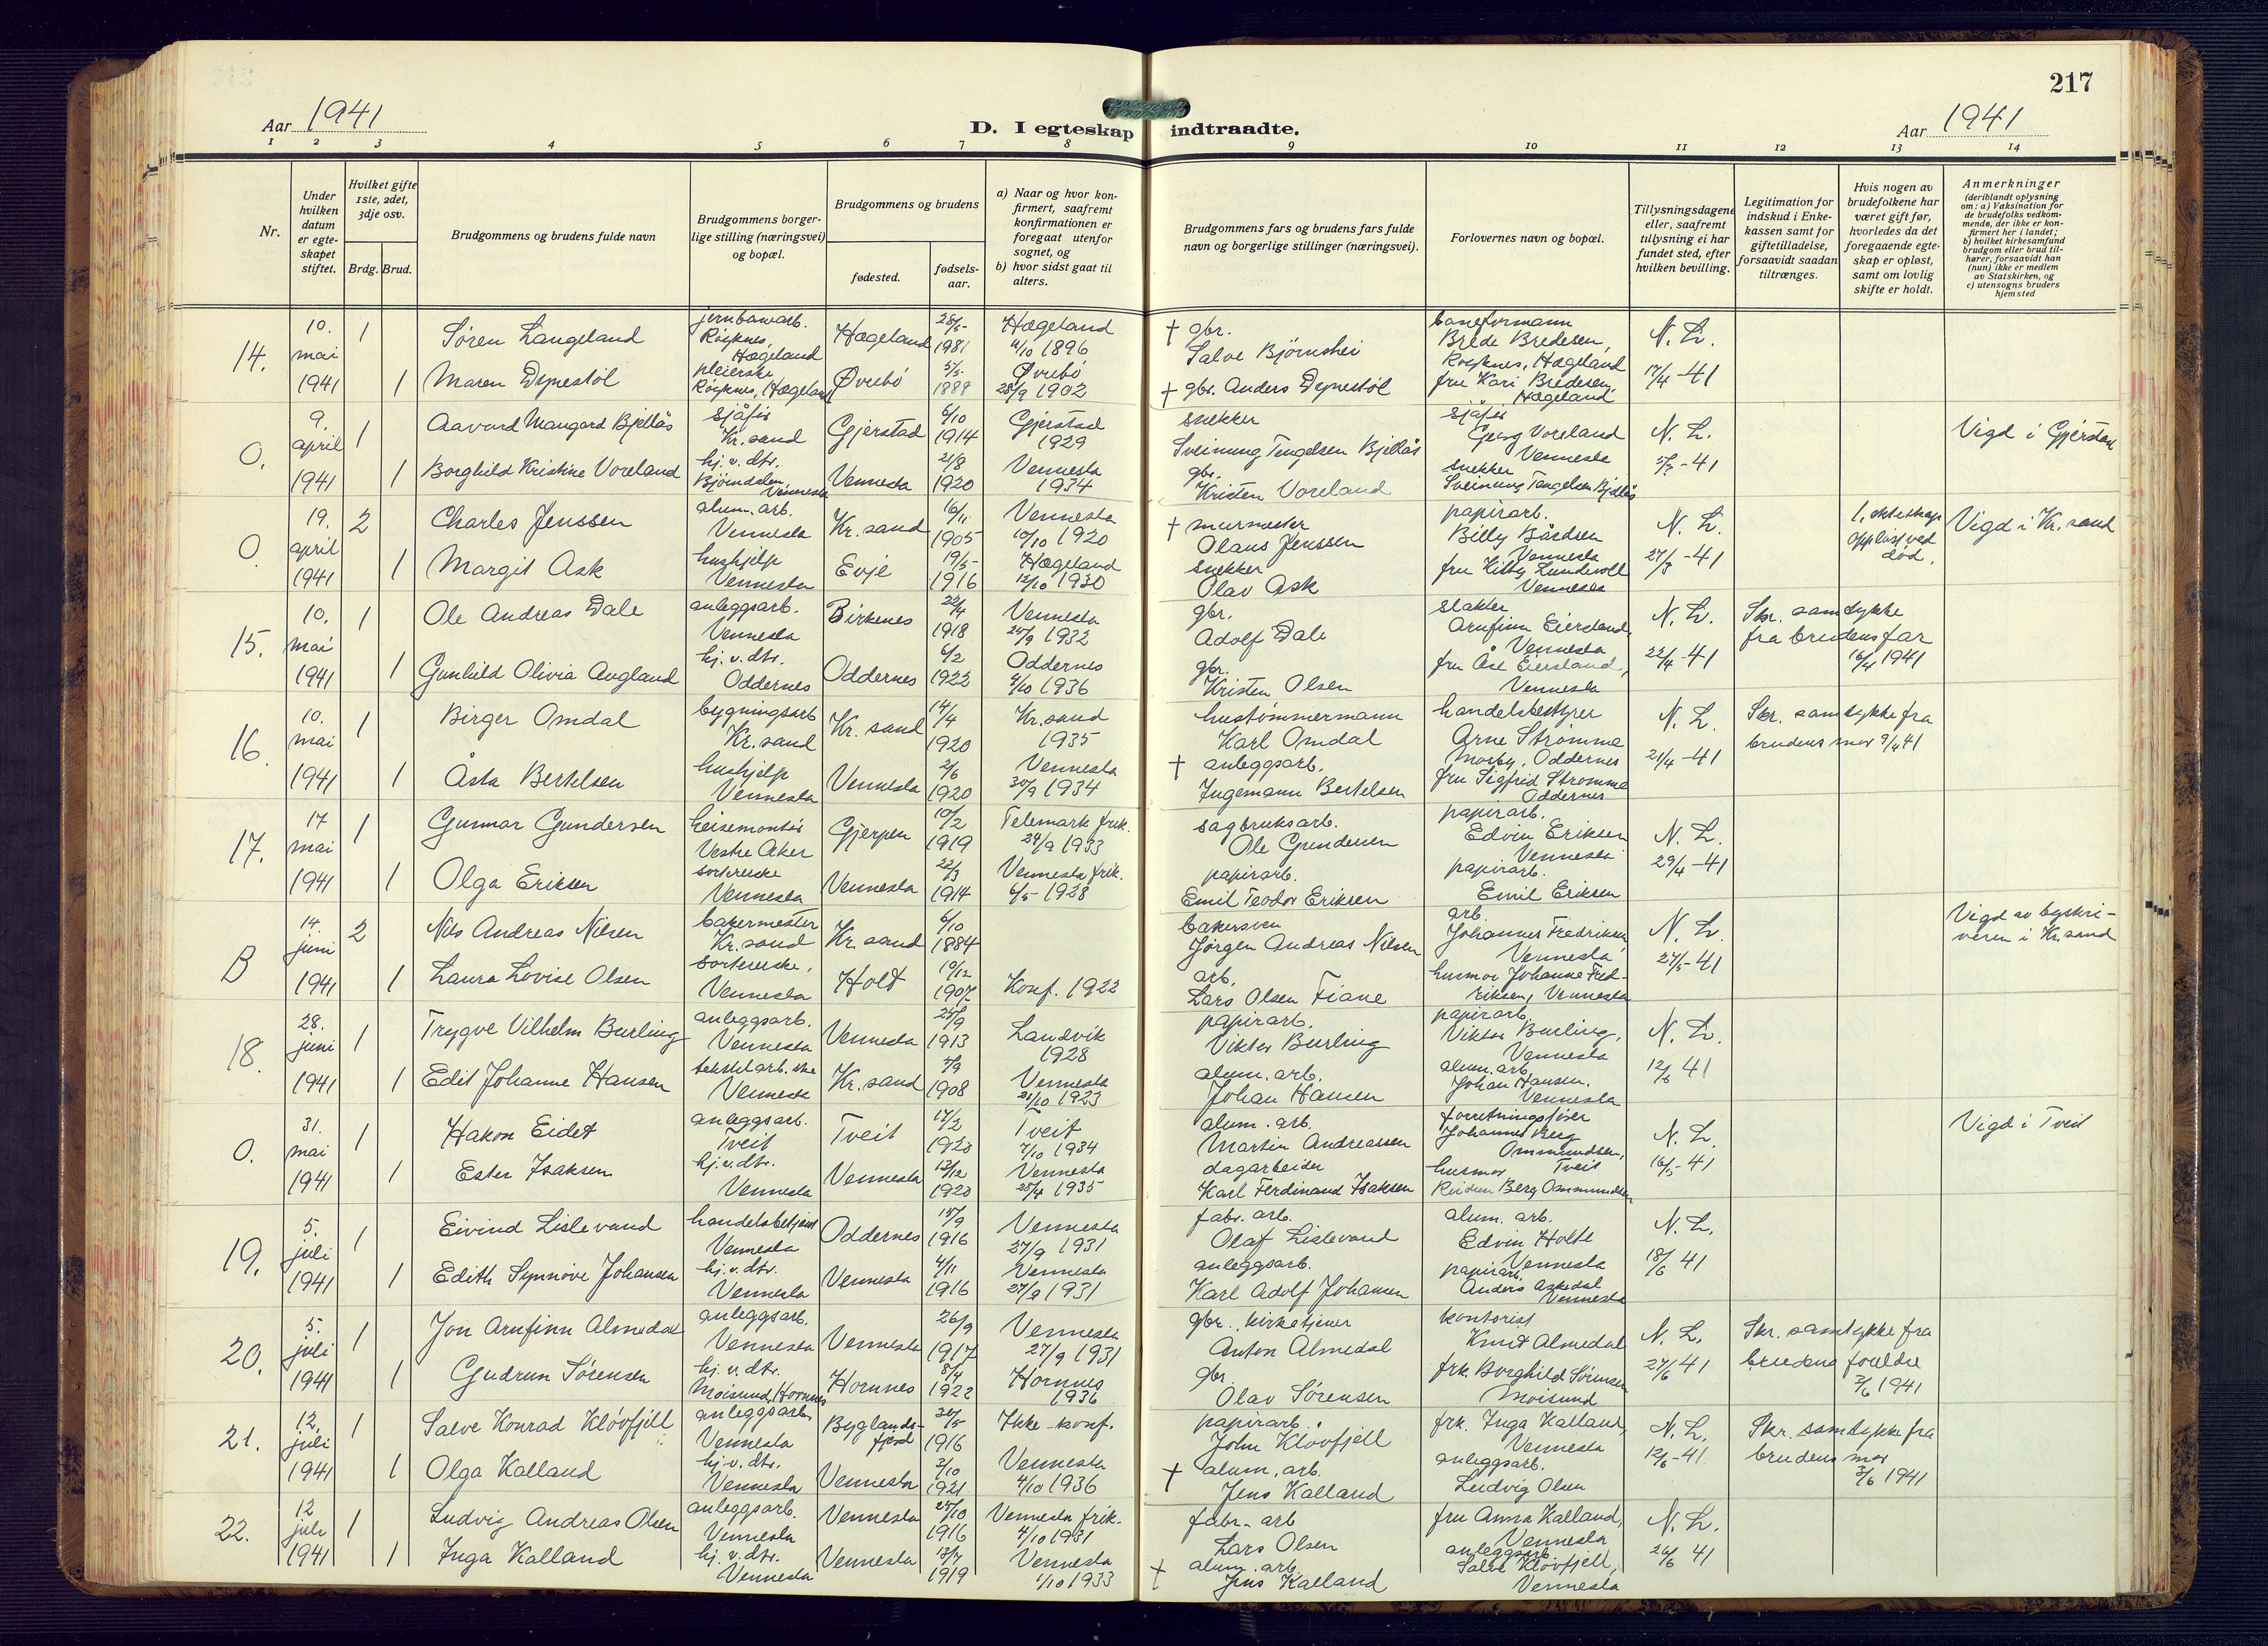 217
Aar 1941
D. I egteskap indtraadte.
Aar 1941
1 2 3 4 5 6 7 8 9 10 11 12 13 14
Nr.
Under hvilken datum er egte-skapet stiftet.
Hvilket gifte 1ste, 2det, 3dje osv.
Brdg. Brud.
Brudgommens og brudens fulde navn
Brudgommens borger-lige stilling (næringsvei) og bopæl.
Brudgommens og brudens
fødested.
fødsels-aar.
a) Naar og hvor kon-firmert, saafremt konfirmationen er foregaat utenfor sognet, og
b) hvor sidst gaat til alters.
Brudgommens fars og brudens fars fulde navn og borgerlige stillinger (næringsvei).
Forlovernes navn og bopæl.
Tillysningsdagene eller, saafremt tillysning ei har fundet sted, efter hvilken bevilling.
Legitimation for indskud i Enke-kassen samt for giftetilladelse, forsaavidt saadan tiltrænges.
Hvis nogen av brudefolkene har været gift før, hvorledes da det foregaaende egte-skap er opløst, samt om lovlig skifte er holdt.
Anmerkninger (deriblandt oplysning om: a) Vaksination for de brudefolks vedkom-mende, der ikke er kon-firmert her i landet; b) hvilket kirkesamfund brudgom eller brud til-hører, forsaavidt han (hun) ikke er medlem av Statskirken, og c) utensogns bruders hjemsted
14. 10. mai 1941 1 Søren Langeland jernbanearb. Røyknes, Hægeland Hægeland 25/5- 1981 Hægeland 4/10 1896 † gbr. Salve Bjørnshei baneformann Brede Bredesen, Røyknes, Hægeland N. L.
1 Maren Dynestøl pleierske Røyknes, Hægeland Øvrebö 5/5- 1888 Øvrebö 28/9 1902 † gbr. Anders Dynestøl fru Kari Bredesen, Hægeland 17/4 - 41
O. 9. april 1941 1 Aavard Maugard Bjellås sjåfør Kr. sand Gjerstad 6/10 1914 Gjerstad 1929 snekker Sveinung Tengelsen Bjellås sjåfør Georg Voreland Vennesla N. L. Vigd i Gjerstad
1 Borghild Kristine Voreland hj. v. dtr. Bjørndalen, Vennesla Vennesla 21/8 1920 Vennesla 1934 gbr. Kristen Voreland snekker Sveinung Tengelsen Bjellås 5/3 - 41
O. 19. april 1941 2 Charles Jenssen alum. arb. Vennesla Kr. sand 16/11 1905 Vennesla 10/10 1920 † murmester Olaus Jenssen papirarb. Billy Bårdsen Vennesla N. L. 1. ekteskap oppløst ved död. Vigd i Kr. sand
1 Margit Ask hushjelp Vennesla Evje 19/5- 1916 Hægeland 12/10 1930 snekker Olav Ask fru Kitty Lundevoll Vennesla 27/3 - 41
15. 10. mai 1941 1 Ole Andreas Dale anleggsarb. Vennesla Birkenes 22/4 1918 Vennesla 25/9 1932 gbr. Adolf Dale slakter Arnfinn Eiersland, Vennesla N. L. Skr. samtykke fra brudens far 16/4 1941
1 Gunhild Olivia Augland hj. v. dtr. Oddernes Oddernes 6/2 1922 Oddernes 4/10 1936 gbr. Kristen Olsen fru Åse Eiersland, Vennesla 22/4 - 41
16. 10. mai 1941 1 Birger Omdal bygningsarb Kr. sand Kr. sand 14/4 1920 Kr. sand 1935 hustømmermann Karl Omdal handelsbestyrer Arne Strømme Mosby, Oddernes N. L. Skr. samtykke fra brudens mor 9/4 41
1 Åsta Bertelsen hushjelp Vennesla Vennesla 2/6 1920 Vennesla 30/9 1934 † anleggsarb. Ingemann Bertelsen fru Sigfrid Strømme Oddernes 21/4 - 41
17. 17 mai 1941 1 Gunnar Gundersen heisemontør Vestre Aker Gjerpen 10/2 1919 Telemark frik. 24/9 1933 sagbruksarb. Ole Gundersen papirarb. Edvin Eriksen Vennesla N. L.
1 Olga Eriksen sorterske Vennesla Vennesla 22/3 1914 Vennesla frik. 6/5- 1928 papirarb. Emil Teodor Eriksen papirarb. Emil Eriksen 29/4 - 41
B 14. juni 1941 2 Nils Andreas Nilsen bakermester Kr. sand Kr. sand 6/10 1884 bakersven Jørgen Andreas Nilsen arb. Johannes Fredriksen, Vennesla N. L. Vigd av byskri-veren i Kr. sand
1 Laura Lovise Olsen sorterske, Vennesla Holt 10/12 1907 Konf. 1922 arb, Lars Olsen Fiane husmor Johanne Fred-riksen, Vennesla 27/5- 41
18. 28. juni 1941 1 Trygve Vilhelm Burling anleggsarb. Vennesla Vennesla 25/9 1913 Landvik 1928 papirarb. Viktor Burling papirarb. Viktor Burling, Vennesla N. L.
1 Edit Johanne Hansen tekstilarb. ske Vennesla Kr. sand 5/9 1908 Vennesla 21/10 1923 alum. arb. Johan Hansen alum. arb. Johan Hansen. Vennesla 12/6 41
O. 31. mai 1941 1 Hakon Eidet anleggsarb. Tveit Tveit 17/2 1920 Tveit 7/10 1934 alum. arb. Martin Andreassen forretningsfører Johannes Berg Ommundsen, Tveit N. L. Vigd i Tveit
1 Ester Isaksen hj. v. dtr. Vennesla Vennesla 12/12 1920 Vennesla 28/4 1935 dagarbeider Karl Ferdinand Isaksen husmor Berg Ommundsen 16/5- 41
19. 5. juli 1941 1 Eivind Lislevand handelsbetjent Vennesla Oddernes 15/9 1916 Vennesla 27/9 1931 fabr. arb. Olaf Lislevand alum. arb. Edvin Holte Vennesla N. L.
1 Edith Synnöve Johansen hj. v. dtr. Vennesla Vennesla 4/11 1916 Vennesla 27/9 1931 anleggsarb. Karl Adolf Johansen papirarb. Anders Askedal Vennesla 18/6 41
20. 5. juli 1941 1 Jon Arnfinn Almedal anleggsarb. Vennesla Vennesla 26/9 1917 Vennesla 27/9 1931 gbr. kirketjener Anton Almedal kontorist Knut Almedal N. L. Skr. samtykke fra brudens foreldre 2/6 1941
1 Gudrun Sørensen hj. v. dtr. Moisund, Hornnes Hornnes 8/4 1922 Hornnes 1936 gbr. Olav Sørensen frk. Borghild Sørensen Moisund 27/6 41
21. 12. juli 1941 1 Salve Konrad Kløvfjell anleggsarb. Vennesla Byglands-fjord 30/5 1916 Ikke konf. papirarb. John Kløvfjell frk. Inga Kalland, Vennesla N. L. Skr. samtykke fra brudens mor 3/6 1941
1 Olga Kalland hj. v. dtr. Vennesla Vennesla 2/10 1921 Vennesla 4/10 1936 † alum. arb. Jens Kalland anleggsarb. Ludvig Olsen 12/6 - 41
22. 12 juli 1941 1 Ludvig Andreas Olsen anleggsarb. Vennesla Vennesla 25/10 1916 Vennesla frik. 4/10 1931 fabr. arb Lars Olsen fru Anna Kalland, Vennesla N. L.
1 Inga Kalland hj. v. dtr. Vennesla Vennesla 13/7 1919 Vennesla 1/10 1933 † alum. arb. Jens Kalland anleggsarb. Salve Kløvfjell, Vennesla 26/6 41